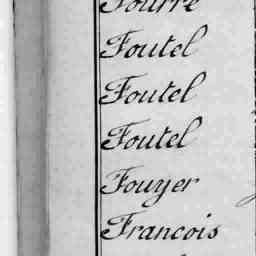 Fourre
Foutel
Foutel
Foutel
Fouyer
Francois